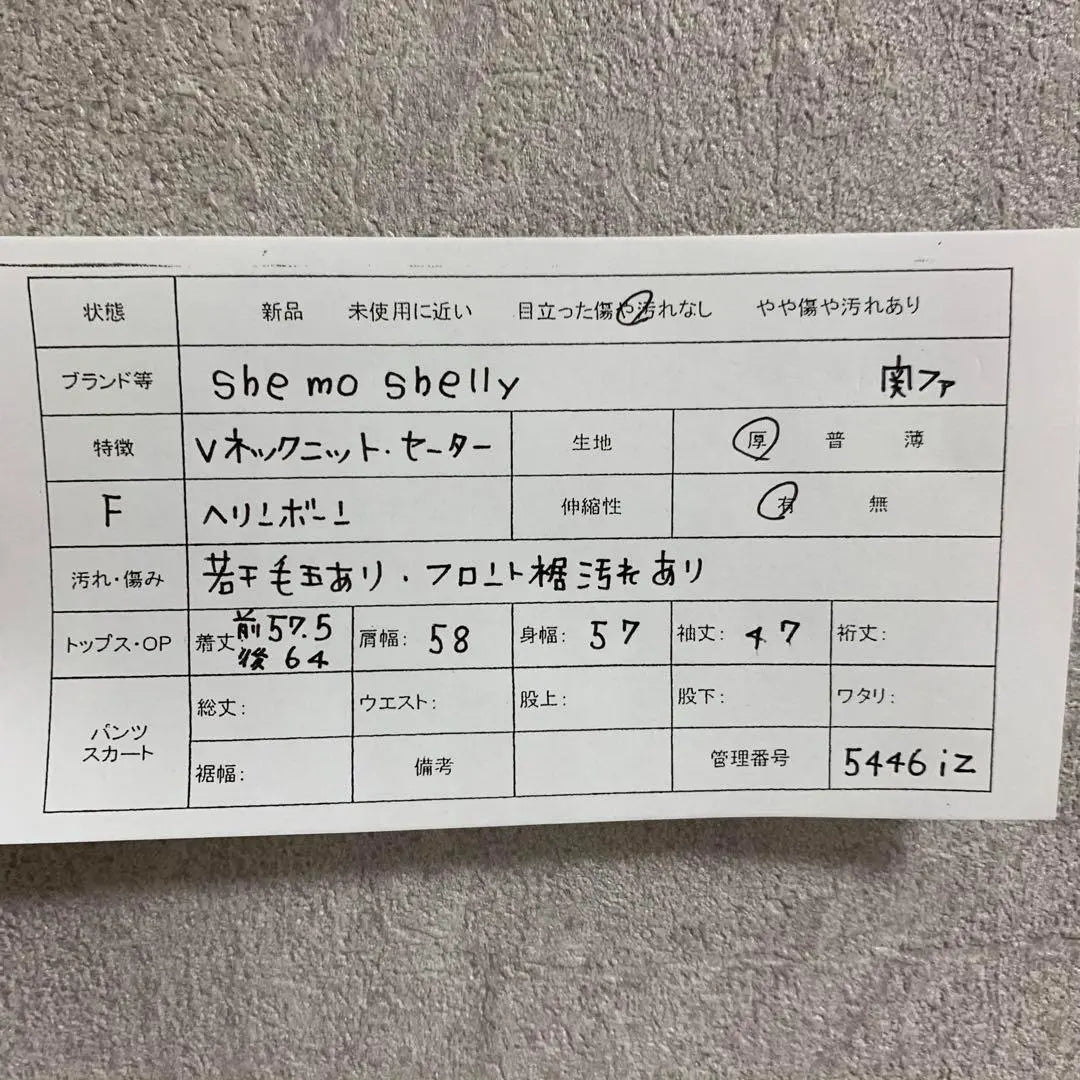 状態 新品 未使用に近い 目立った傷や汚れなし やや傷や汚れあり
ブランド等 she mo shelly 関ファ
特徴 Vネックニット・セーター 生地 厚 普 薄
F ヘリンボーン 伸縮性 有 無
汚れ・傷み 若干毛玉あり・フロント裾汚れあり
トップス・OP 着丈 前57.5 後64 肩幅: 58 身幅: 57 袖丈: 47 裄丈:
パンツ スカート 総丈: ウエスト: 股上: 股下: ワタリ:
裾幅: 備考 管理番号 5446iz